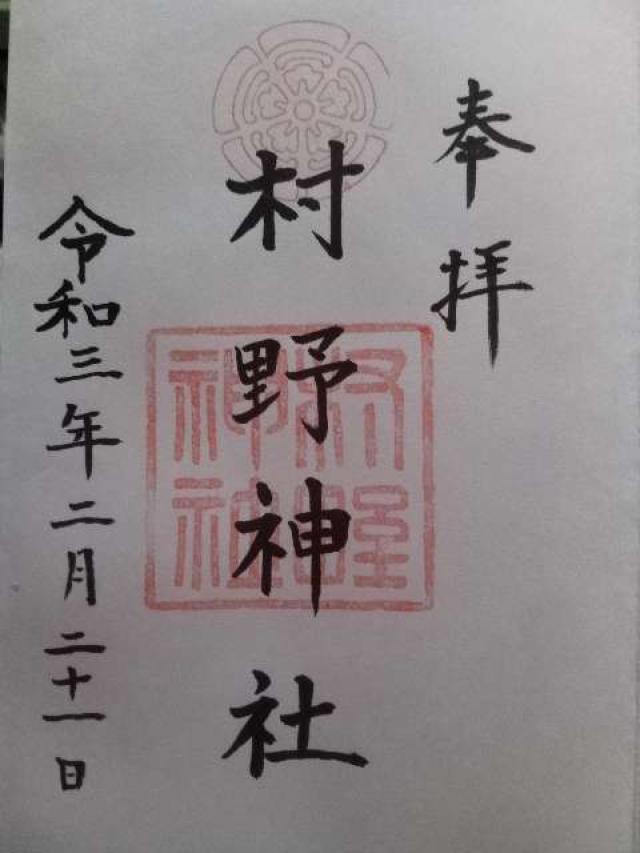 奉拝
村野神社
村野神社
令和三年二月二十一日